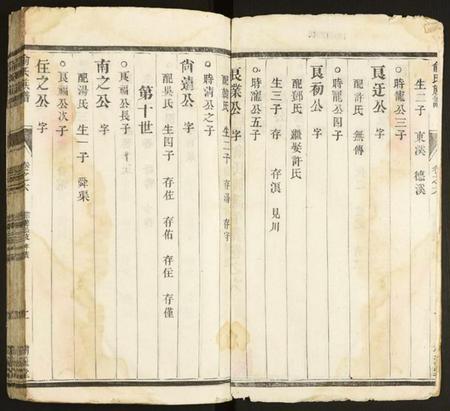 生二子 東溪 德溪
時龍公三子
良迋公 字
配許氏 無傳
時龍公四子
良初公 字
配鄧氏 繼娶許氏
生三子 存 存淏 見川
時龍公五子
良業公 字
配 氏 生二子 存 存字
時清公之子
尚遠公 字
配吳氏 生四子 存仕 存佑 存任 存僅
第十世
良福公長子
南之公 字
配湯氏 生一子 舜渠
良福公次子
任之公 字
俞氏族譜
卷之六